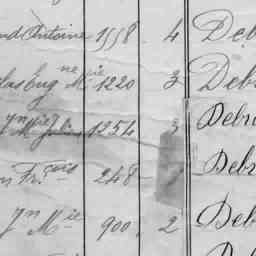 nd Antoine 1558. 4 Deb
las Eug ne Mie 1220 3 Deb
Jn Mie Julien 1254 3 Debr
n Fr. çois 248 1 Deb
Jn Mie 900. 2 Deb